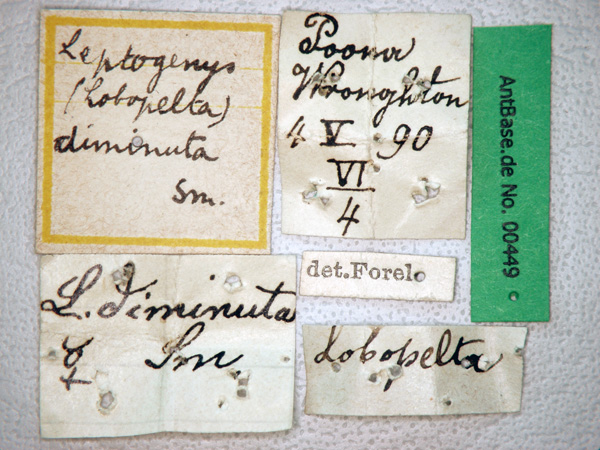 Leptogenys
(Lobopelta)
diminuta
Sm.
Poona
Wroughton
4 V 90
VI
4
AntBase.de No. 00449
det.Forel.
L. diminuta
☿ Sm
Lobopelta